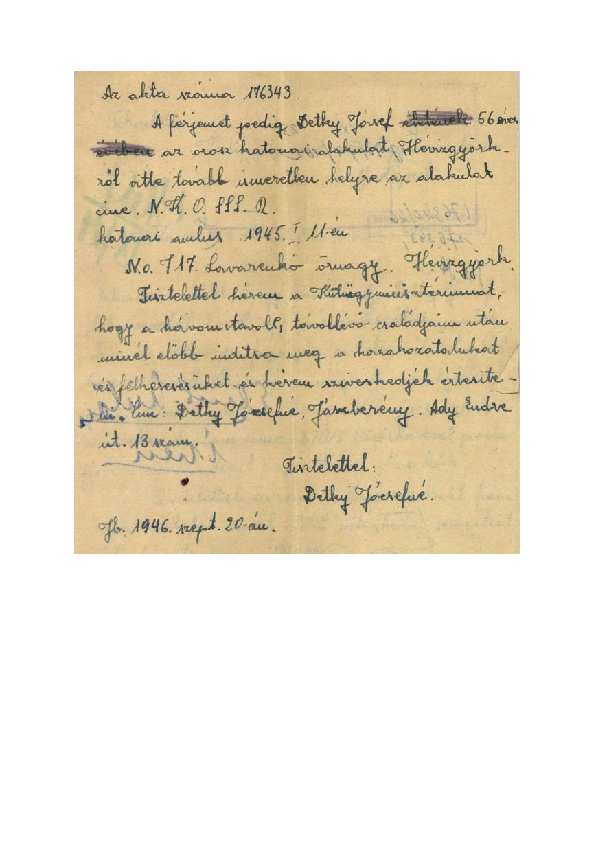 Az akta száma 176343
A férjemet pedig Detky József 56 éves
az orosz katonai alakulat Hévizgyörk-
ről vitte tovább ismeretlen helyre az alakulat
cime. N. K. O.
1945. I 11-én
N.o. 717. Lavarenkó őrnagy. Hévizgyörk.
Tisztelettel kérem a Külügyminisztériumot,
hogy a három távoll, távollévő családjaim után
minél előbb inditsa meg a hozzahozatalukat
és felkeresésüket és kérem sziveskedjék értesite-
ni. Cim: Detky Józsefné, Jászberény. Ady Endre
út. 13 szám.
Tisztelettel:
Detky Józsefné.
Jb. 1946. szept. 20-án.